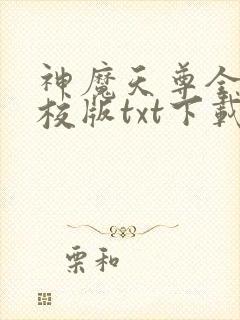 神魔天尊全
校版txt下载
栗和